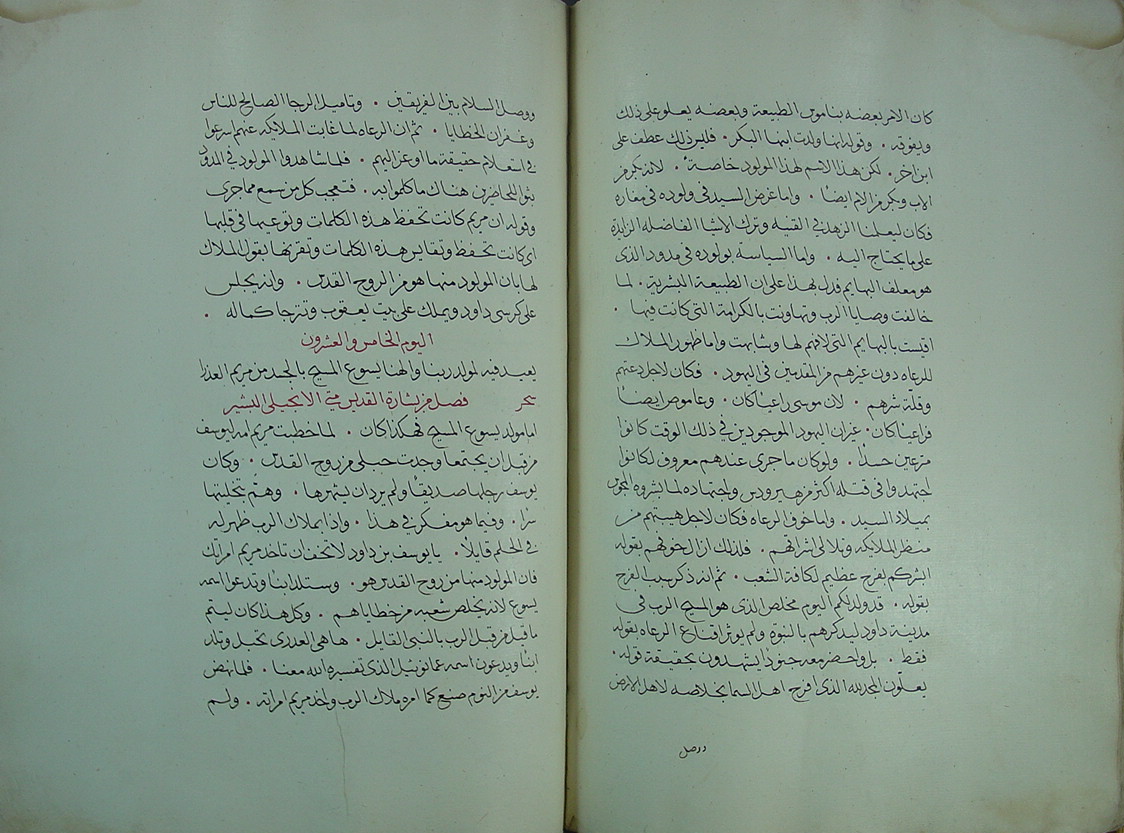 كان الامر بعضه بناموس الطبيعة وبعضه يعلو على ذلك
ويفوقه . وقوله انها ولدت ابنها البكر . فليس ذلك عطف على
ابن اخر . لكن هذا الاسم لهذا المولود خاصة . لانه بكر من
الاب وبكر من الام ايضا . واما غرض السيد في ولوده في مغاره
فكان ليعلمنا الزهد في القنيه وترك الاشيا الفاضله الزايدة
على ما يحتاج اليه . واما السياسة بولوده في مدود الذى
هو معلف البهايم فدل بهذا على ان الطبيعة البشرية . لما
خالفت وصايا الرب وتهاونت بالكرامة التي كانت فيها .
اقيست بالبهايم التى لافهم لها وشابهت واما ظهور الملاك
للرعاه دون غيرهم من المقدمين في اليهود . فكان لاجل دعتهم
وقلة شرهم . لان موسى راعيا كان . وعاموص ايضا
فراعيا كان . غير ان اليهود الموجودين في ذلك الوقت كانوا
مترعين حسدا . ولو كان ما جرى عندهم معروف لكانوا
اجتهدوا في قتله اكثر من هيرودس واجتهاده لما بشروه المجوس
بميلاد السيد . واما خوف الرعاه فكان لاجل هيبتهم من
منظر الملايكه وتلالى اشراقهم . فلذلك ازال خوفهم بقوله
ابشركم بفرح عظيم لكافة الشعب . ثم انه ذكر سبب الفرح
بقوله . قد ولد لكم اليوم مخلص الذى هو المسيح الرب في
مدينة داود ليذكرهم بالنبوة ولم يوثر اقناع الرعاه بقوله
فقط . بل واحضر معه جنودا يشهدون بحقيقة قوله .
يعلون المجد لله الذى افرح اهل السما بخلاصه لاهل الارض
ووصل
ووصل السلام بين الفريقين . وتاميل الرجا الصالح للناس
وغفران الخطايا . ثم ان الرعاه لما غابت الملايكه عنهم اسرعوا
في استعلام حقيقة ما اوعز اليهم . فلما شاهدوا المولود في المدود
بثوا للحاضرين هناك ما كلموا به . فتعجب كل من سمع مما جرى
وقوله ان مريم كانت تحفظ هذه الكلمات وتوعيها في قلبها
اى كانت تحفظ وتقايس هذه الكلمات وتقرنها بقول الملاك
لها بان المولود منها هو من الروح القدس . وانه يجلس
على كرسى داود ويملك على بيت يعقوب وتترجا كماله .
اليوم الخامس والعشرون
يعيد فيه لمولد ربنا والهنا يسوع المسيح بالجسد من مريم العذرا
سحر فصل من بشارة القديس متى الانجيلى البشير
اما مولد يسوع المسيح فهكذا كان . لما خطبت مريم امه ليوسف
من قبل ان يجتمعا وجدت حبلى من روح القدس . وكان
يوسف رجلها صديقا ولم يرد ان يشهرها . وهم بتخليتها
سرا . وفيما هو مفكر في هذا . واذا بملاك الرب ظهر له
في الحلم قايلا . يا يوسف بن داود لا تخف ان تاخذ مريم امراتك
فان المولود منها من روح القدس هو . وستلد ابنا وتدعوا اسمه
يسوع لانه يخلص شعبه من خطاياهم . وكل هذا كان ليتم
ما قيل من قبل الرب بالنبى القايل . ها هى العذرى تحبل وتلد
ابنا ويدعون اسمه عمانوئيل الذى تفسيره الله معنا . فلما نهض
يوسف من النوم صنع كما امره ملاك الرب واخذ مريم امراته . ولم